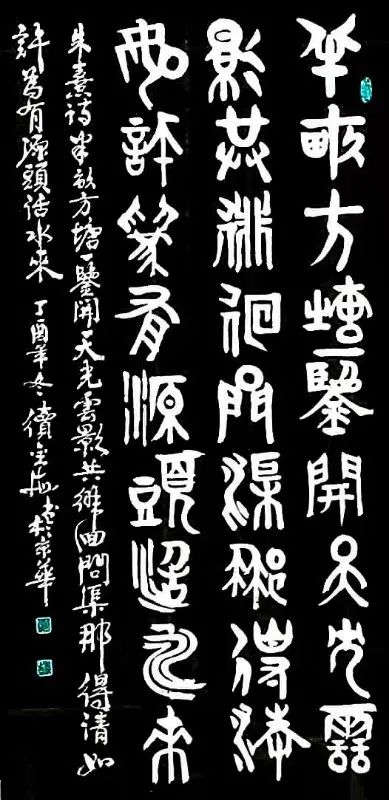 半畝方塘一鑒開天光雲
影共徘徊問渠那得清
如許為有源頭活水来
朱熹詩半畝方塘一鑒開天光雲影共徘徊問渠那得清如
許為有源頭活水来丁酉年冬書於京華